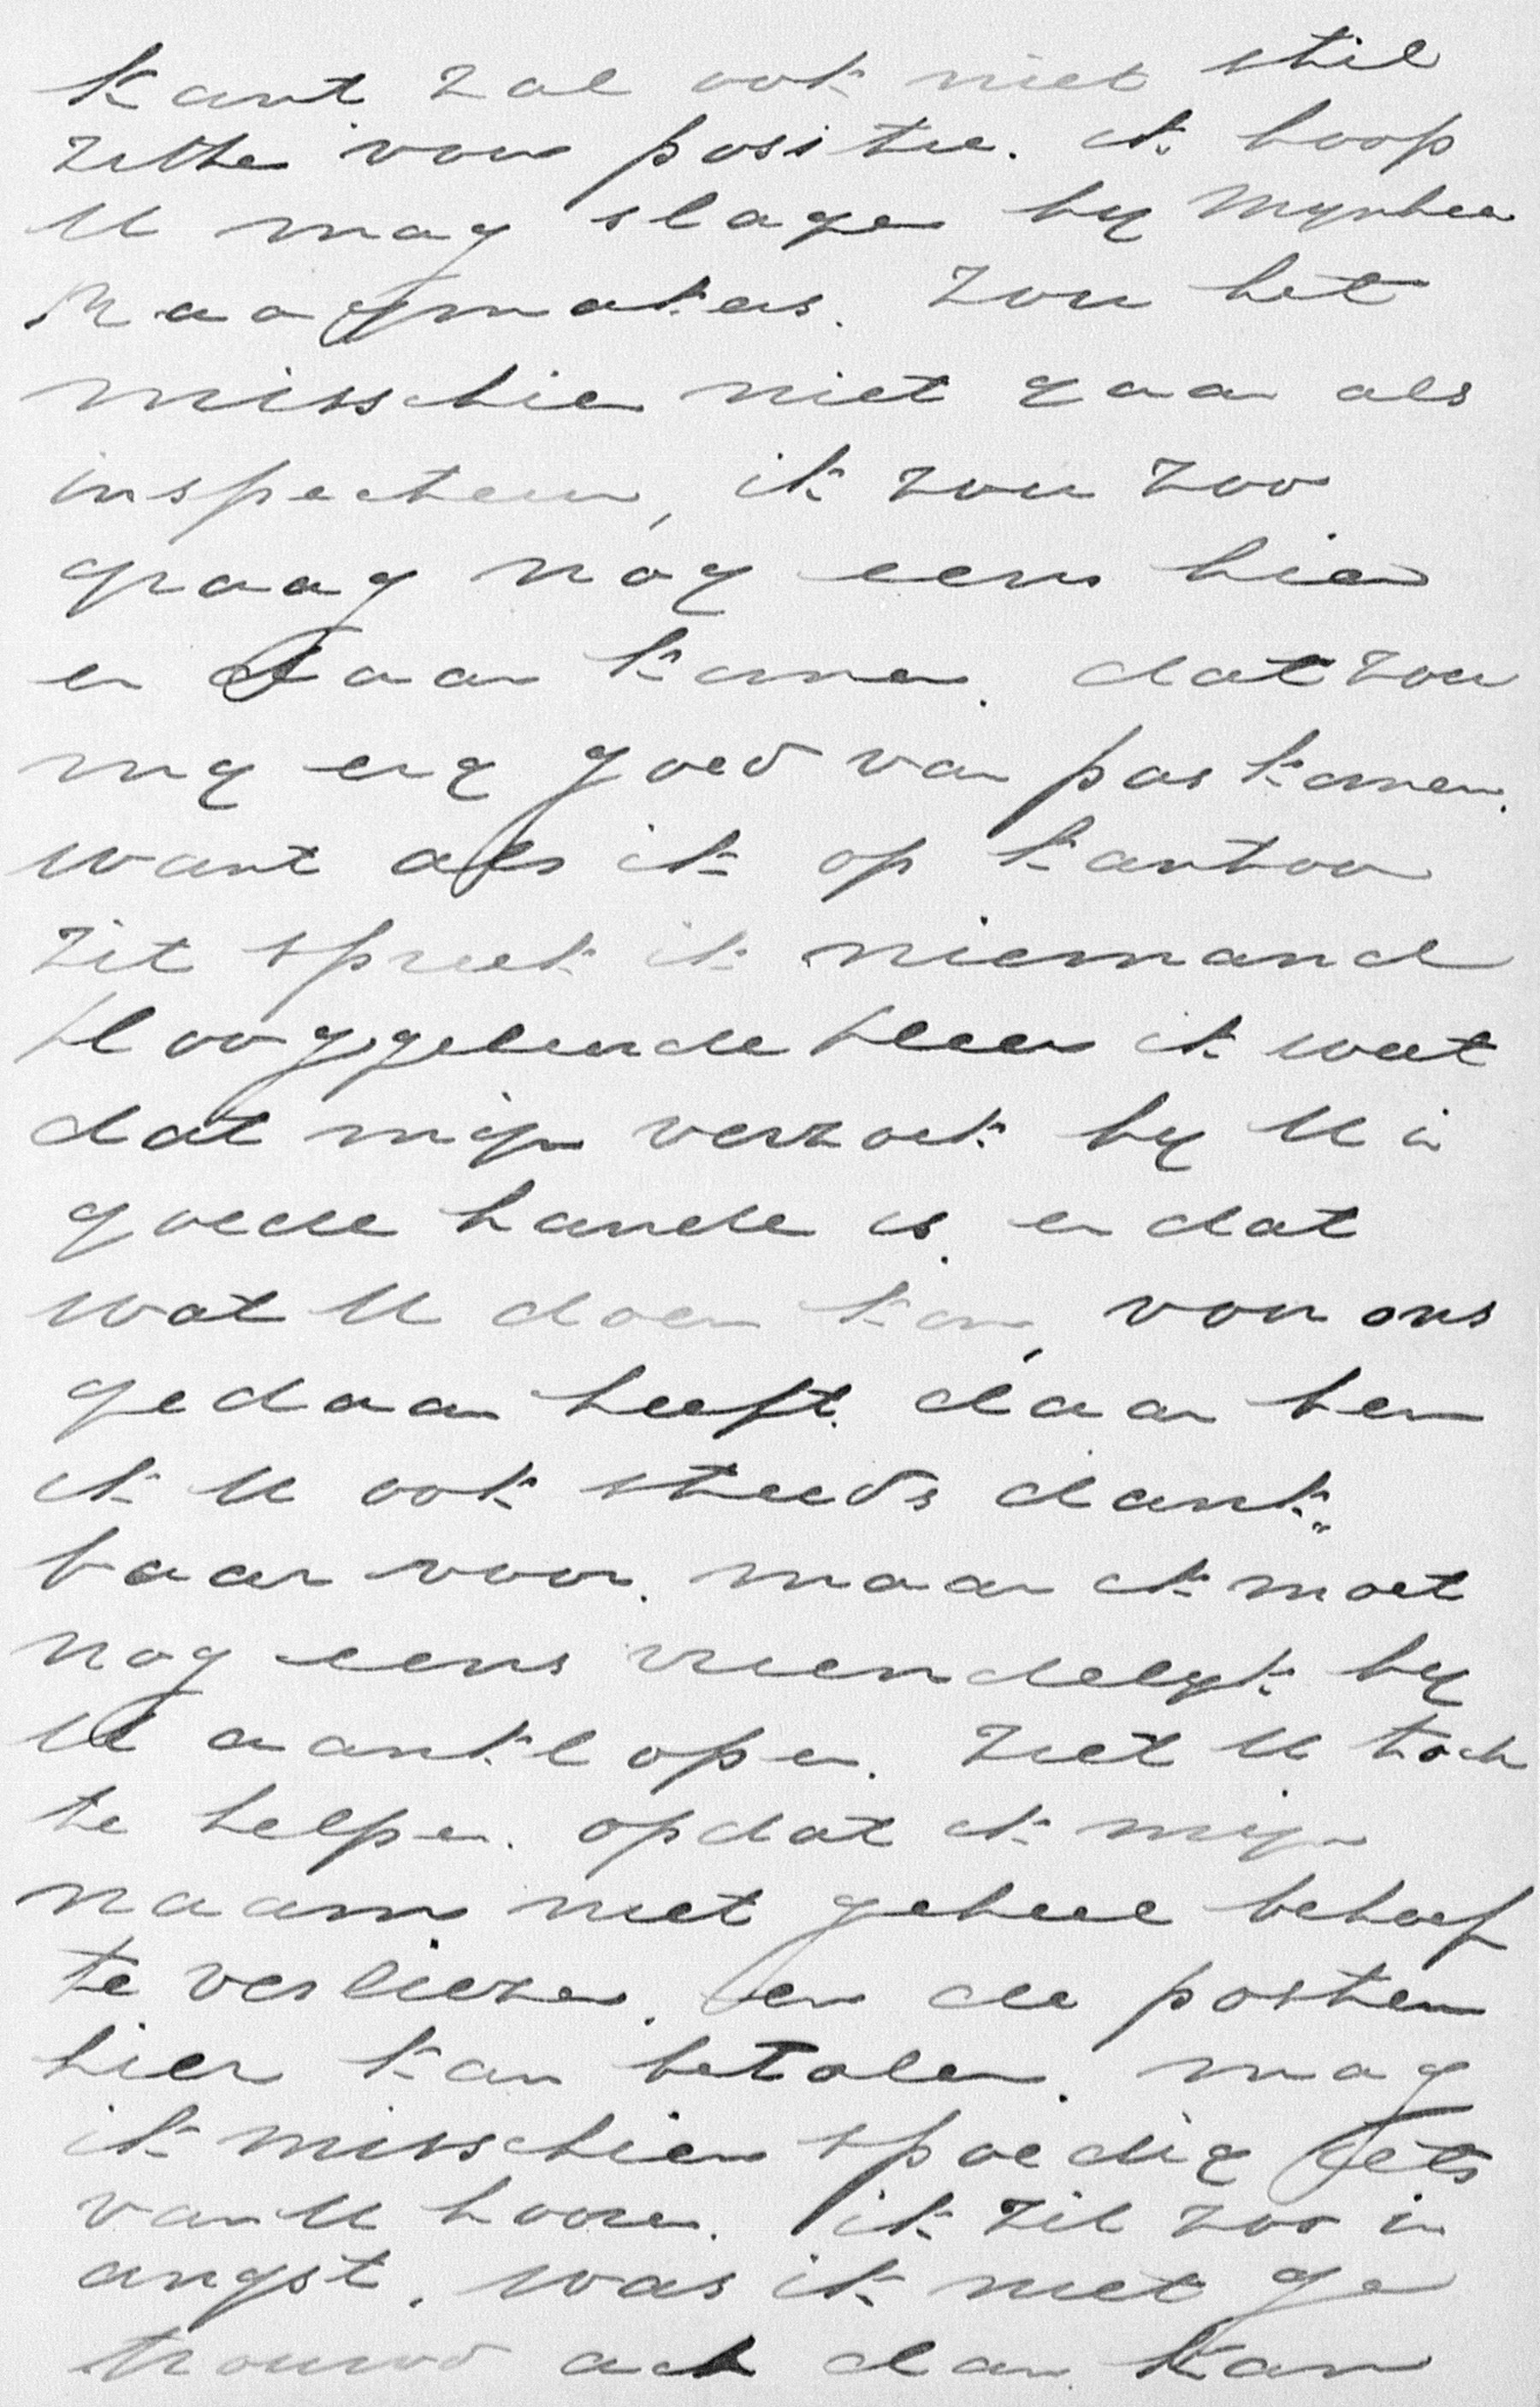 kant zal ook niet stil
zitte voor positie. ik hoop
U mag slage by Mynheer
Raaymakers. Zou het
misschien niet gaan als
inspecteur, ik zou zoo
graag nog eens hier
en daar komen. dat zou
my erg goed van pas komen.
want als ik op kantoor
zit spreek ik niemand
Hooggeleerde Heer ik weet
dat mijn verzoek by U in
goede hande is. en dat
wat U doen kon, voor ons
gedaan heeft. daar ben
ik U ook steeds dank„
baar voor. maar ik moet
nog eens vriendelyk by
U aankloppen. Ziet U toch
te helpen. opdat ik mijn
naam niet geheel behoef
te verliezen. en de posten
hier kan betalen. mag
ik misschien spoedig iets
van U hooren. ik zit zoo in
angst. was ik niet ge
trouwd ach dan kon